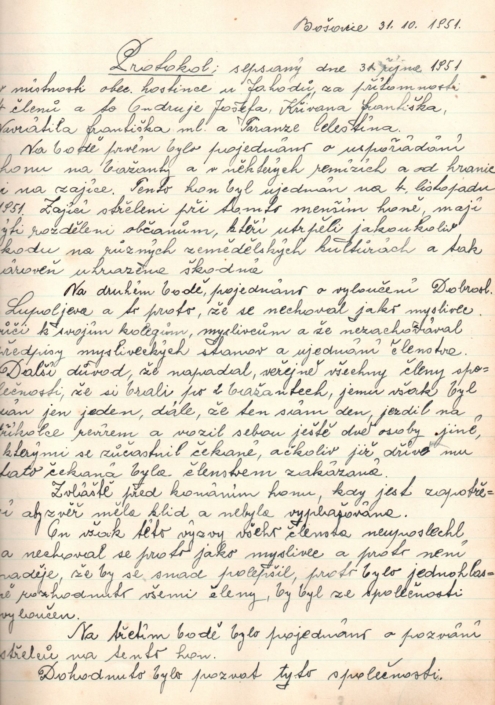 Bošovice 31. 10. 1951.
Protokol: sepsaný dne 31. října 1951
v místnosti obec. hostince u Jahodů, za přítomnosti
členů a to Ondruje Josefa, Křivana Františka,
Navrátila Františka ml. a Taranze Celestina.
Na bodě prvém bylo pojednáno o uspořádání
honu na bažanty a v některých remízích a od hranic
i na zajíce. Tento hon byl ujednán na 4. listopadu
1951. Zajíci střelení při tomto menším honě, mají
býti rozděleni občanům, kteří utrpěli jakoukoliv
škodu na různých zemědělských kulturách a tak
zároveň uhrazena škodná
Na druhém bodě, pojednáno o vyloučení Dobrosl.
Lupoljeva a to proto, že se nechoval jako myslivec
vůči k svojím kolegům, myslivcům a že nezachovával
předpisy mysliveckých stanov a ujednání členstva.
Další důvod, že napadal, veřejně všechny členy spo-
lečnosti, že si brali po 2 bažantech, jemu však byl
dán jen jeden, dále, že ten sám den, jezdil na
tříkolce revírem a vozil sebou ještě dvě osoby jiné,
kterými se zúčastnil čekané, ačkoliv již, dříve mu
tato čekaná byla členstvem zakázana.
Zvláště před konáním honu, kdy jest zapotře-
í aby zvěř měla klid a nebyla vyplašována.
On však této výzvy všeho členstva neuposlechl
a nechoval se proto jako myslivec a proto není
naděje, že by se snad polepšil, proto bylo jednohlas-
ně rozhodnuto všemi členy, by byl ze společnosti
vyloučen.
Na třetím bodě bylo pojednáno o pozvání
střelců na tento hon.
Dohodnuto bylo pozvat tyto společnosti.